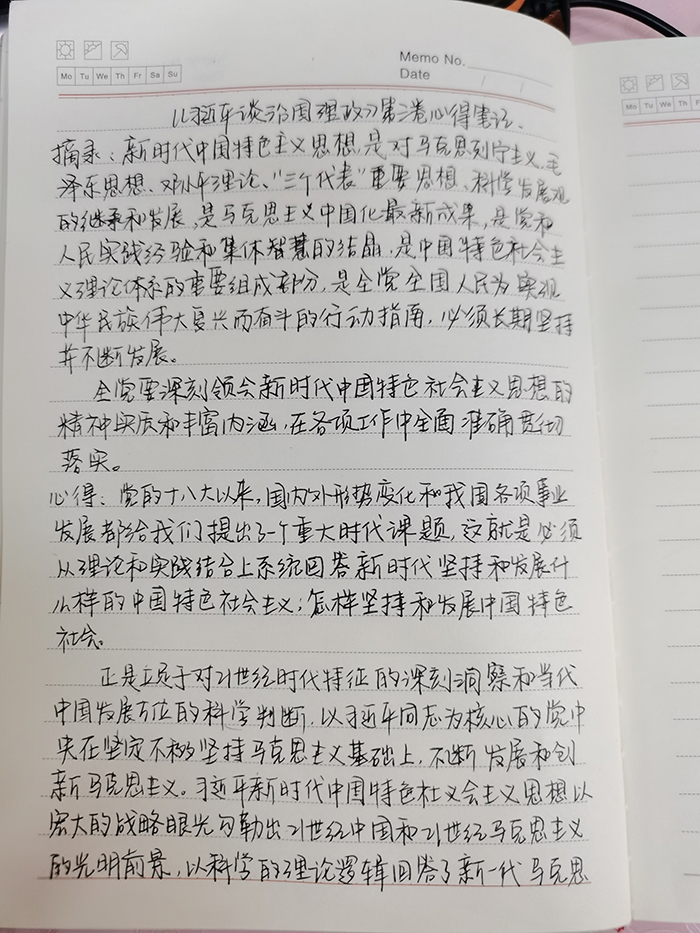 Memo No.
Date
Mo Tu We Th Fr Sa Su
《习近平谈治国理政》第三卷心得笔记.
摘录：新时代中国特色主义思想，是对马克思列宁主义、毛
泽东思想、邓小平理论、“三个代表”重要思想、科学发展观
的继承和发展，是马克思主义中国化最新成果，是党和
人民实践经验和集体智慧的结晶，是中国特色社会主
义理论体系的重要组成部分，是全党全国人民为实现
中华民族伟大复兴而奋斗的行动指南，必须长期坚持
并不断发展。
全党要深刻领会新时代中国特色社会主义思想的
精神实质和丰富内涵，在各项工作中全面准确贯彻
落实。
心得：党的十八大以来，国内外形势变化和我国各项事业
发展都给我们提出了一个重大时代课题，这就是必须
从理论和实践结合上系统回答新时代坚持和发展什
么样的中国特色社会主义；怎样坚持和发展中国特色
社会。
正是立足于对21世纪时代特征的深刻洞察和当代
中国发展方位的科学判断，以习近平同志为核心的党中
央在坚定不移坚持马克思主义基础上，不断发展和创
新马克思主义。习近平新时代中国特色社义会主义思想以
宏大的战略眼光勾勒出21世纪中国和21世纪马克思主义
的光明前景，以科学的理论逻辑回答了新一代马克思
Mo Tu We Th